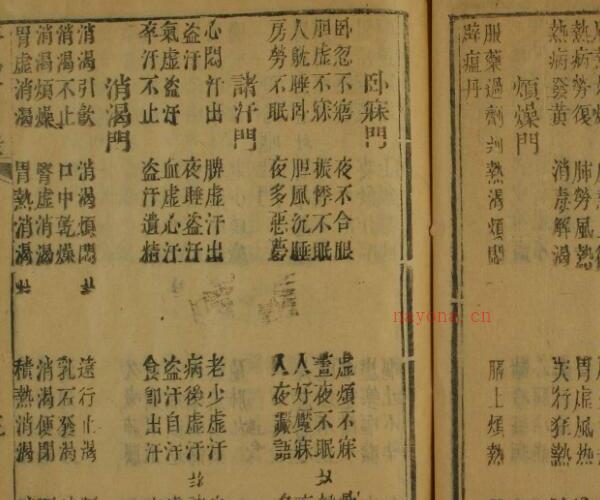 熱病勞復 肺勞風熱 胃虛風熱
熱病發黃 消毒解渴 失行狂熱
煩燥門
服藥過劑 熱渴煩悶 膈上煩熱
辟瘟丹
卧寐門
卧忽不寤 夜不合眼 虛煩不寐
膽虛不寐 振悸不眠 晝夜不眠
人躭睡卧 膽風沉睡 人好魘寐
房勞不眠 夜多惡夢 人夜讝語
諸汗門
心悶汗出 脾虛汗出 老少虛汗
盗汗 夜睡盗汗 病後虛汗
氣虛盗汗 血虛心汗 盗汗自汗
卒汗不止 盗汗遺精 食即出汗
消渴門
消渴引飲 消渴煩悶 遠行止渴
消渴不止 口中乾燥 乳石發渴
消渴煩燥 腎虛消渴 消渴便閉
胃虛消渴 胃熱消渴 積熱消渴
nayona.cn